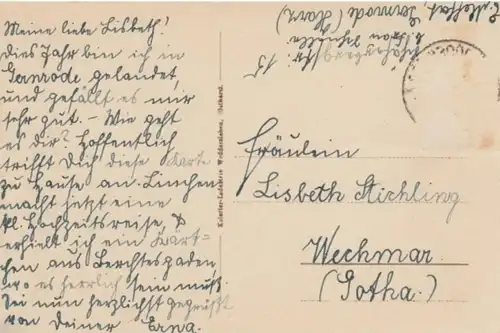 Meine liebe Lisbeth!
Dies Jahr bin ich in
Gernrode gelandet,
und gefällt es mir
sehr gut. – Wie geht
es dir? Hoffentlich
trifft Dich diese Karte
zu Hause an. Linchen
macht jetzt eine
kl. Hochzeitsreise, &
erhielt ich ein Kärt-
chen aus Berchtesgaden,
wo es herrlich sein muß.
Sei nun herzlichst gegrüßt
von Deiner Erna.
Gernrode (Harz)
15
Fräulein
Lisbeth Stichling
Wechmar
(Gotha.)